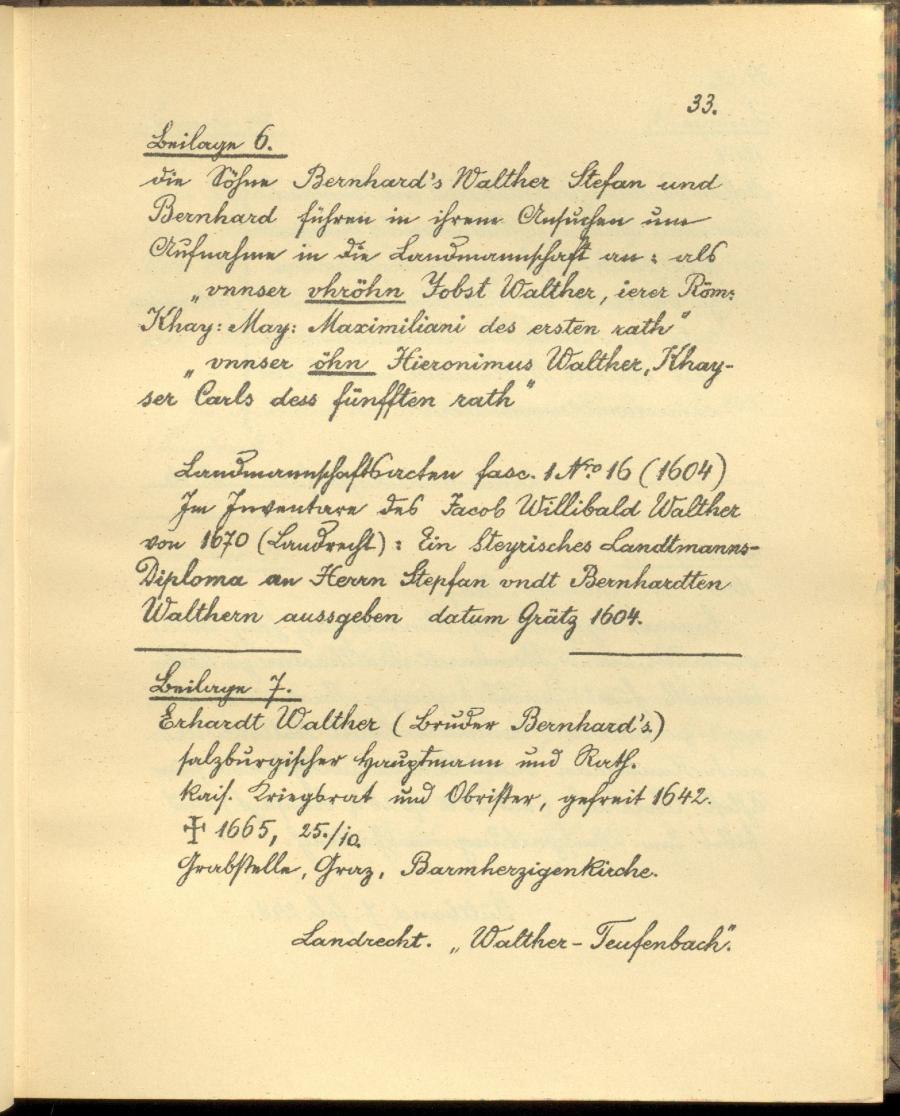 33.
Beilage 6.
die Söhne Bernhard's Walther Stefan und
Bernhard führen in ihrem Ansuchen um
Aufnahme in die Landmannschaft an : als
„vnnser vhröhn Jobst Walther, ierer Röm:
Khay: May: Maximiliani des ersten rath“
„vnnser öhn Hieronimus Walther, Khay-
ser Carls dess fünfften rath“
Landmannschaftsacten fasc. 1 Nro 16 (1604)
Im Inventare des Jacob Willibald Walther
von 1670 (Landrecht) : Ein Steyrisches Landtmanns-
Diploma an Herrn Stepfan vndt Bernhardten
Walthern aussgeben datum Grätz 1604.
Beilage 7.
Erhardt Walther (Bruder Bernhard's)
salzburgischer Hauptmann und Rath.
kais. Kriegsrat und Obrister, gefreit 1642.
✠ 1665, 25./10.
Grabstelle, Graz, Barmherzigenkirche.
Landrecht. „Walther-Teufenbach“.